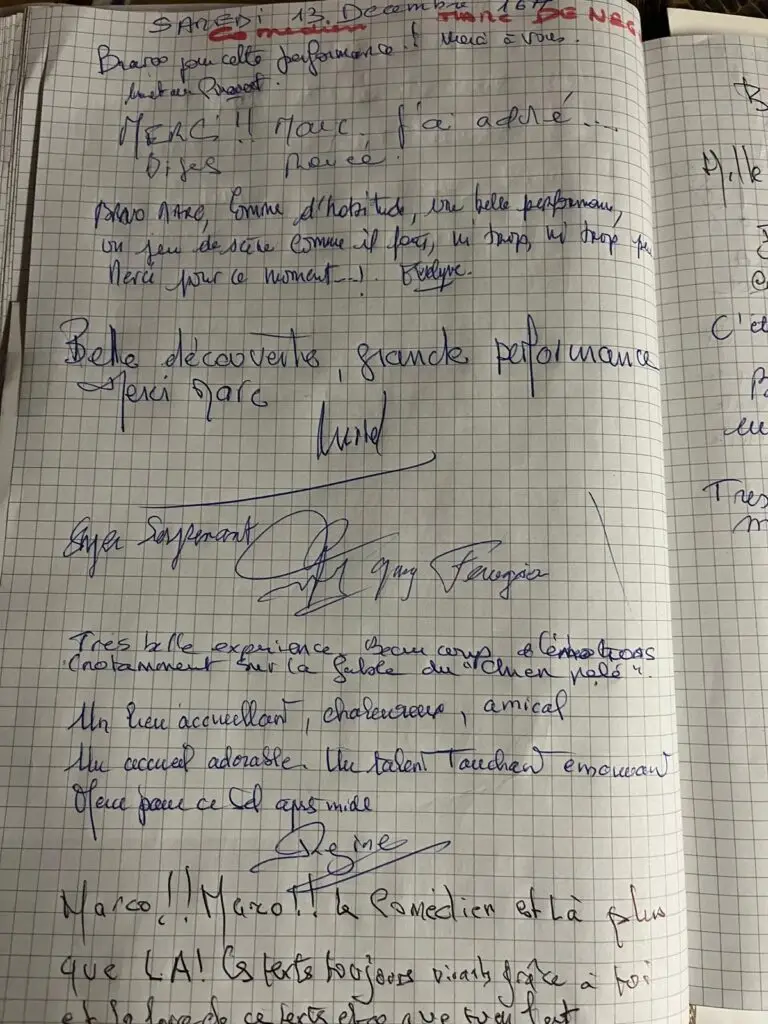 SAMEDI 13. Decembre 16H MARC DE NEG
Comedien
Bravo pour cette performance! merci à vous.
MERCI!! Marc. J'ai adoré....
Bravo MARC, Comme d'habitude, une belle performance,
un jeu de scène comme il faut, ni trop, ni trop pe
Merci pour ce moment...! Evelyne.
Belle découverte, grande performance
Merci Marc
Muriel
Guy
Tres belle experience. Beaucoup d'émotions
(notamment sur la fable du "Chien pelé".
Un lieu accueillant, chaleureux, amical
Un accueil adorable. Un talent Touchant emouvant
Merci pour ce bel aprs midi
Regine
Marco!! Marco!! le Comédien est Là plus
que LA! Cs texts toujours vivants grâce à toi
et la force de ce texts et ce que tu en fait
B
Mille
C'e
Tres
m